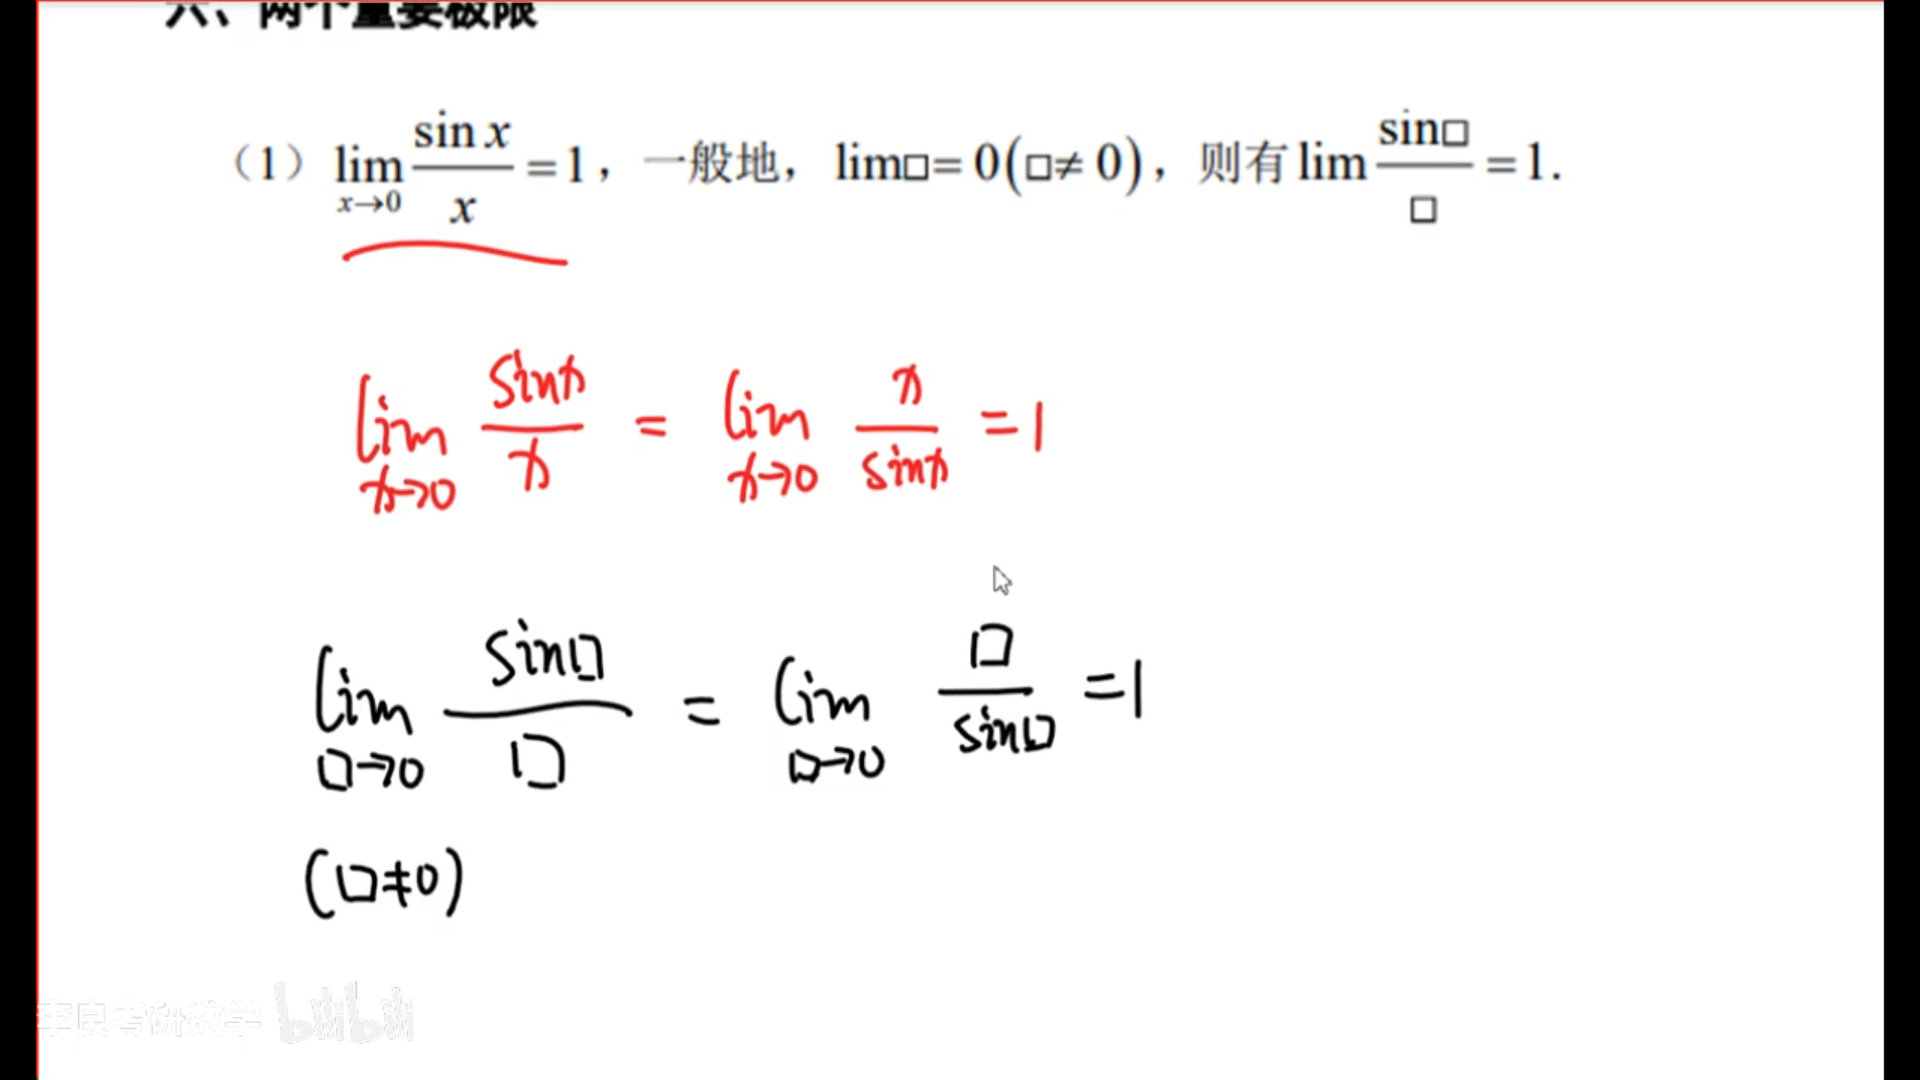 六、两个重要极限
（1）lim_{x→0} sin x / x = 1，一般地，lim□= 0(□≠ 0)，则有 lim sin□ / □ = 1.
lim_{x→0} sinx / x = lim_{x→0} x / sinx = 1
lim_{□→0} sin□ / □ = lim_{□→0} □ / sin□ = 1
(□≠0)
李良考研数学 bilibili